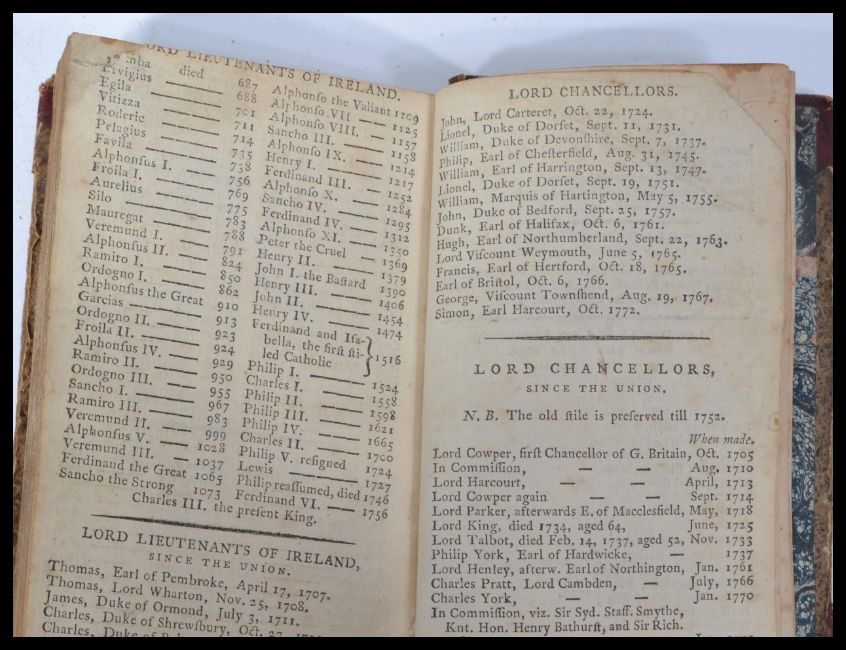 LORD LIEUTENANTS OF IRELAND.
mba died 687
Ervigius — 688
Egila — 701
Vitizza — 711
Roderic — 714
Pelagius — 735
Favila — 738
Alphonſus I. — 756
Froila I. — 769
Aurelius — 775
Silo — 783
Mauregat — 788
Veremund I. — 791
Alphonſus II. — 824
Ramiro I. — 850
Ordogno I. — 862
Alphonſus the Great 910
Garcias — 913
Ordogno II. — 923
Froila II. — 924
Alphonſus IV. — 929
Ramiro II. — 950
Ordogno III. — 955
Sancho I. — 967
Ramiro III. — 983
Veremund II. — 999
Alphonſus V. — 1028
Veremund III. — 1037
Ferdinand the Great 1065
Sancho the Strong 1073
Alphonſo the Valiant 1109
Alphonſo VII. — 1125
Alphonſo VIII. — 1157
Sancho III. — 1158
Alphonſo IX. — 1214
Henry I. — 1217
Ferdinand III. — 1252
Alphonſo X. — 1284
Sancho IV. — 1295
Ferdinand IV. — 1312
Alphonſo XI. — 1350
Peter the Cruel — 1369
Henry II. — 1379
John I. the Baſtard 1390
Henry III. — 1406
John II. — 1454
Henry IV. — 1474
Ferdinand and Iſa-
bella, the firſt ſti- } 1516
led Catholic
Philip I. — 1524
Charles I. — 1558
Philip II. — 1598
Philip III. — 1621
Philip IV. — 1665
Charles II. — 1700
Philip V. reſigned 1724
Lewis — 1727
Philip reaſſumed, died 1746
Ferdinand VI. — 1756
Charles III. the preſent King.
LORD LIEUTENANTS OF IRELAND,
SINCE THE UNION.
Thomas, Earl of Pembroke, April 17, 1707.
Thomas, Lord Wharton, Nov. 25, 1708.
James, Duke of Ormond, July 3, 1711.
Charles, Duke of Shrewſbury, Oct. 27,
Charles, Duke of
LORD CHANCELLORS.
John, Lord Carteret, Oct. 22, 1724.
Lionel, Duke of Dorſet, Sept. 11, 1731.
William, Duke of Devonſhire, Sept. 7, 1737.
Philip, Earl of Cheſterfield, Aug. 31, 1745.
William, Earl of Harrington, Sept. 13, 1747.
Lionel, Duke of Dorſet, Sept. 19, 1751.
William, Marquis of Hartington, May 5, 1755.
John, Duke of Bedford, Sept. 25, 1757.
Dunk, Earl of Halifax, Oct. 6, 1761.
Hugh, Earl of Northumberland, Sept. 22, 1763.
Lord Viſcount Weymouth, June 5, 1765.
Francis, Earl of Hertford, Oct. 18, 1765.
Earl of Briſtol, Oct. 6, 1766.
George, Viſcount Townſhend, Aug. 19, 1767.
Simon, Earl Harcourt, Oct. 1772.
LORD CHANCELLORS,
SINCE THE UNION.
N. B. The old ſtile is preſerved till 1752.
When made.
Lord Cowper, firſt Chancellor of G. Britain, Oct. 1705
In Commiſſion, — — Aug. 1710
Lord Harcourt, — — April, 1713
Lord Cowper again — — Sept. 1714
Lord Parker, afterwards E. of Macclesfield, May, 1718
Lord King, died 1734, aged 64, June, 1725
Lord Talbot, died Feb. 14, 1737, aged 52, Nov. 1733
Philip York, Earl of Hardwicke, — 1737
Lord Henley, afterw. Earl of Northington, Jan. 1761
Charles Pratt, Lord Cambden, — July, 1766
Charles York, — — Jan. 1770
In Commiſſion, viz. Sir Syd. Staff. Smythe,
Knt. Hon. Henry Bathurſt, and Sir Rich.